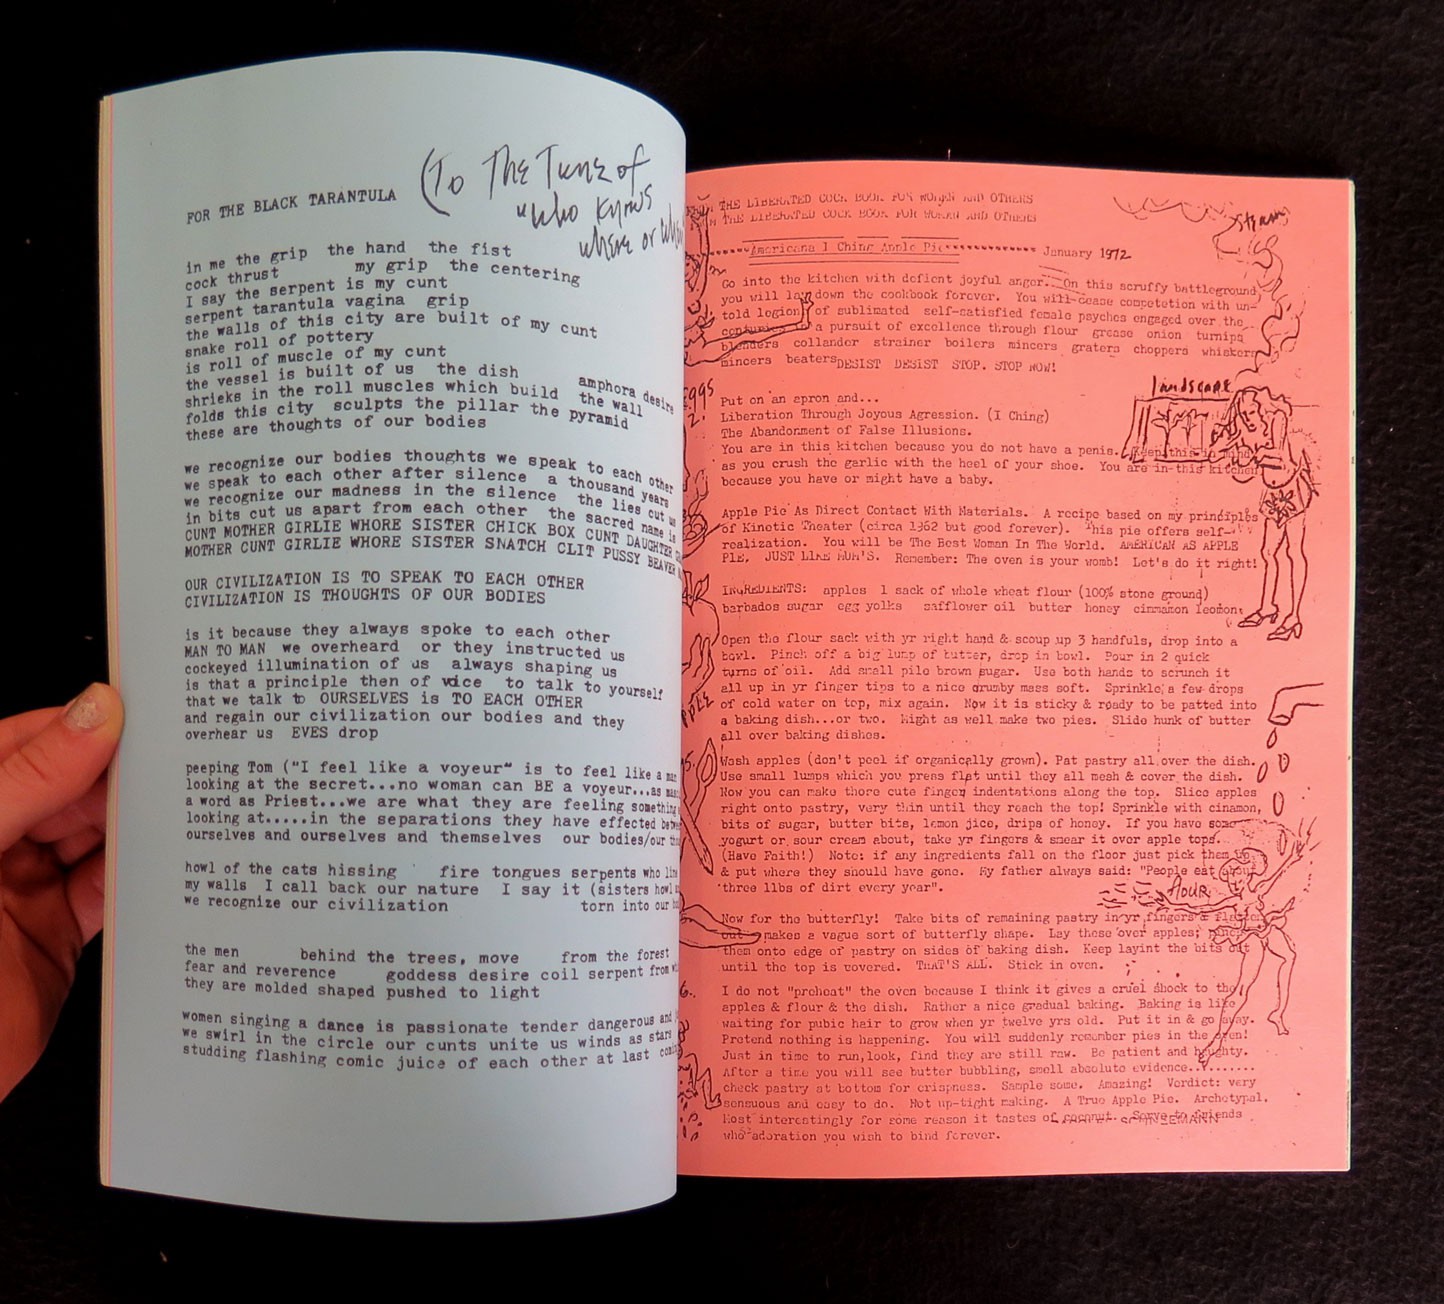 FOR THE BLACK TARANTULA
(To The Tune of
"who knows
where or when
in me the grip the hand the fist
cock thrust my grip the centering
I say the serpent is my cunt
serpent tarantula vagina grip
the walls of this city are built of my cunt
snake roll of pottery
is roll of muscle of my cunt
the vessel is built of us the dish amphora desire
shrieks in the roll muscles which build the wall
folds this city sculpts the pillar the pyramid
these are thoughts of our bodies
we recognize our bodies thoughts we speak to each other
we speak to each other after silence a thousand years
we recognize our madness in the silence the lies cut us
in bits cut us apart from each other the sacred name is
CUNT MOTHER GIRLIE WHORE SISTER CHICK BOX CUNT DAUGHTER
MOTHER CUNT GIRLIE WHORE SISTER SNATCH CLIT PUSSY BEAVER
OUR CIVILIZATION IS TO SPEAK TO EACH OTHER
CIVILIZATION IS THOUGHTS OF OUR BODIES
is it because they always spoke to each other
MAN TO MAN we overheard or they instructed us
cockeyed illumination of us always shaping us
is that a principle then of voice to talk to yourself
that we talk to OURSELVES is TO EACH OTHER
and regain our civilization our bodies and they
overhear us EVES drop
peeping Tom ("I feel like a voyeur" is to feel like a man
looking at the secret...no woman can BE a voyeur...as
a word as Priest...we are what they are feeling something
looking at.....in the separations they have effected
ourselves and ourselves and themselves our bodies/our
howl of the cats hissing fire tongues serpents who line
my walls I call back our nature I say it (sisters howl
we recognize our civilization torn into our
the men behind the trees, move from the forest
fear and reverence goddess desire coil serpent from
they are molded shaped pushed to light
women singing a dance is passionate tender dangerous and
we swirl in the circle our cunts unite us winds as stars
studding flashing comic juice of each other at last
THE LIBERATED COCK BOOK FOR WOMEN AND OTHERS
THE LIBERATED COCK BOOK FOR WOMAN AND OTHERS
steam
Americana I Ching Apple Pie January 1972
Go into the kitchen with defient joyful anger... On this scruffy battleground
you will lay down the cookbook forever. You will cease competetion with un-
told legion of sublimated self-satisfied female psyches engaged over the
centuries in a pursuit of excellence through flour grease onion turnips
blenders collander strainer boilers mincers graters choppers whiskers
mincers beaters DESIST DESIST STOP. STOP NOW!
eggs
landscape
Put on an apron and...
Liberation Through Joyous Agression. (I Ching)
The Abandonment of False Illusions.
You are in this kitchen because you do not have a penis. Keep this in mind
as you crush the garlic with the heel of your shoe. You are in this kitchen
because you have or might have a baby.
Apple Pie As Direct Contact With Materials. A recipe based on my principles
of Kinetic Theater (circa 1962 but good forever). This pie offers self-
realization. You will be The Best Woman In The World. AMERICAN AS APPLE
PIE, JUST LIKE MOM'S. Remember: The oven is your womb! Let's do it right!
INGREDIENTS: apples 1 sack of whole wheat flour (100% stone ground)
barbados sugar egg yolks safflower oil butter honey cinnamon leomon
Open the flour sack with yr right hand & scoup up 3 handfuls, drop into a
bowl. Pinch off a big lump of butter, drop in bowl. Pour in 2 quick
turns of oil. Add small pile brown sugar. Use both hands to scrunch it
all up in yr finger tips to a nice crumby mass soft. Sprinkle a few drops
of cold water on top, mix again. Now it is sticky & ready to be patted into
a baking dish...or two. Might as well make two pies. Slide hunk of butter
all over baking dishes.
Wash apples (don't peel if organically grown). Pat pastry all over the dish.
Use small lumps which you press flat until they all mesh & cover the dish.
Now you can make those cute finger indentations along the top. Slice apples
right onto pastry, very thin until they reach the top! Sprinkle with cinamon,
bits of sugar, butter bits, lemon jice, drips of honey. If you have some
yogurt or sour cream about, take yr fingers & smear it over apple tops.
(Have Faith!) Note: if any ingredients fall on the floor just pick them up
& put where they should have gone. My father always said: "People eat about
three llbs of dirt every year".
flour
Now for the butterfly! Take bits of remaining pastry in yr fingers & flatten
out makes a vague sort of butterfly shape. Lay these over apples; pinch
them onto edge of pastry on sides of baking dish. Keep layint the bits out
until the top is covered. THAT'S ALL. Stick in oven.
I do not "preheat" the oven because I think it gives a cruel shock to the
apples & flour & the dish. Rather a nice gradual baking. Baking is like
waiting for pubic hair to grow when yr twelve yrs old. Put it in & go away.
Pretend nothing is happening. You will suddenly remember pies in the oven!
Just in time to run, look, find they are still raw. Be patient and haughty.
After a time you will see butter bubbling, smell absolute evidence..........
check pastry at bottom for crispness. Sample some. Amazing! Verdict: very
sensuous and easy to do. Not up-tight making. A True Apple Pie. Archetypal.
Most interestingly for some reason it tastes of coconut. Serve to friends
who adoration you wish to bind forever.
SCHNEEMANN